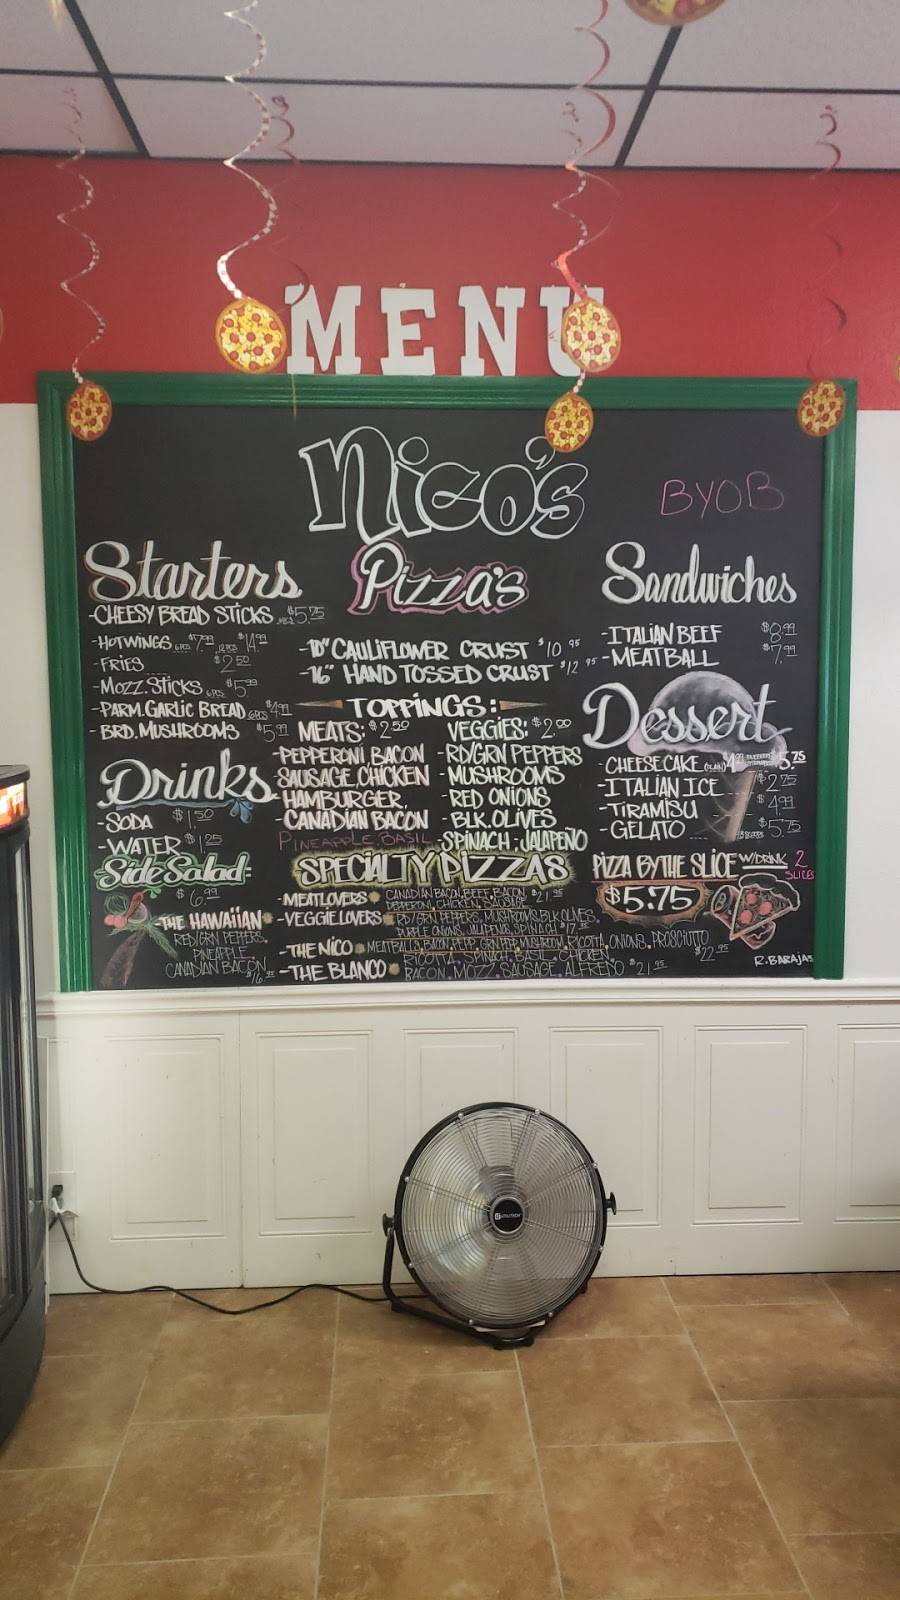 MENU
Nico's
BYOB
Starters
-CHEESY BREAD STICKS $5.25
-HOTWINGS 6PCS $7.99 12PCS $14.99
-FRIES $2.50
-MOZZ. STICKS 6PCS $5.99
-PARM. GARLIC BREAD 6PCS $4.99
-BRD. MUSHROOMS $5.99
Drinks
-SODA $1.50
-WATER $1.25
Side Salad:
$6.99
-THE HAWAiiAN
RED/GRN PEPPERS,
PINEAPPLE,
CANADIAN BACON
Pizza's
-10" CAULIFLOWER CRUST $10.95
-16" HAND TOSSED CRUST $12.95
TOPPINGS:
MEATS: $2.50
-PEPPERONI, BACON
SAUSAGE, CHICKEN
HAMBURGER,
-CANADIAN BACON
PINEAPPLE BASIL
VEGGIES: $2.00
-RD/GRN PEPPERS
-MUSHROOMS
-RED ONIONS
-BLK. OLIVES
-SPINACH - JALAPEÑO
SPECIALTY PIZZAS
-MEATLOVERS CANADIAN BACON, BEEF, BACON, $21.95
PEPPERONI, CHICKEN, SAUSAGE
-VEGGIELOVERS RD/GRN PEPPERS, MUSHROOMS, BLK OLIVES,
PURPLE ONIONS, JALAPENOS, SPINACH $17.95
-THE NICO MEATBALLS, BACON, PEPP, GRN PEPP, MUSHROOM, RICOTTA, ONIONS, PROSCIUTTO $22.95
-THE BLANCO RICOTTA, SPINACH, BASIL, CHICKEN,
BACON, MOZZ, SAUSAGE, ALFREDO $21.95
Sandwiches
-ITALIAN BEEF $8.99
-MEATBALL $7.99
Dessert
-CHEESECAKE (PLAIN) 4.99 $5.75
-ITALIAN ICE $2.75
-TIRAMISU $4.99
-GELATO $5.75
PIZZA BY THE SLICE W/DRINK 2 SLICES
$5.75
R. BARAJAS
UTILITECH